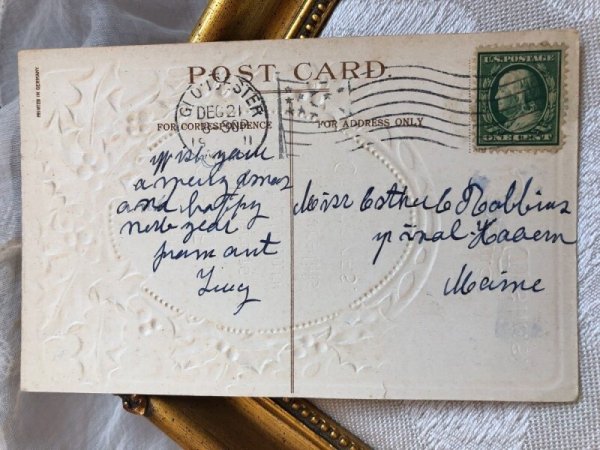 PRINTED IN GERMANY.
POST CARD.
GLOUCESTER
DEC 21
FOR CORRESPONDENCE
FOR ADDRESS ONLY
U.S. POSTAGE
ONE CENT
wish you
a merry xmas
and happy
new year
from aunt
Lucy
Miss Esther C Robbins
Vinal-Haven
Maine